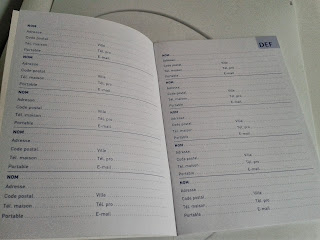 NOM
Adresse
Code postal Ville
Tél. maison Tél. pro
Portable E-mail
NOM
Adresse
Code postal Ville
Tél. maison Tél. pro
Portable E-mail
NOM
Adresse
Code postal Ville
Tél. maison Tél. pro
Portable E-mail
NOM
Adresse
Code postal Ville
Tél. maison Tél. pro
Portable E-mail
NOM
Adresse
Code postal Ville
Tél. maison Tél. pro
Portable E-mail
DEF
NOM
Adresse
Code postal Ville
Tél. maison Tél. pro
Portable E-mail
NOM
Adresse
Code postal Ville
Tél. maison Tél. pro
Portable E-mail
NOM
Adresse
Code postal Ville
Tél. maison Tél. pro
Portable E-mail
NOM
Adresse
Code postal Ville
Tél. maison Tél. pro
Portable E-mail
NOM
Adresse
Code postal Ville
Tél. maison Tél. pro
Portable E-mail